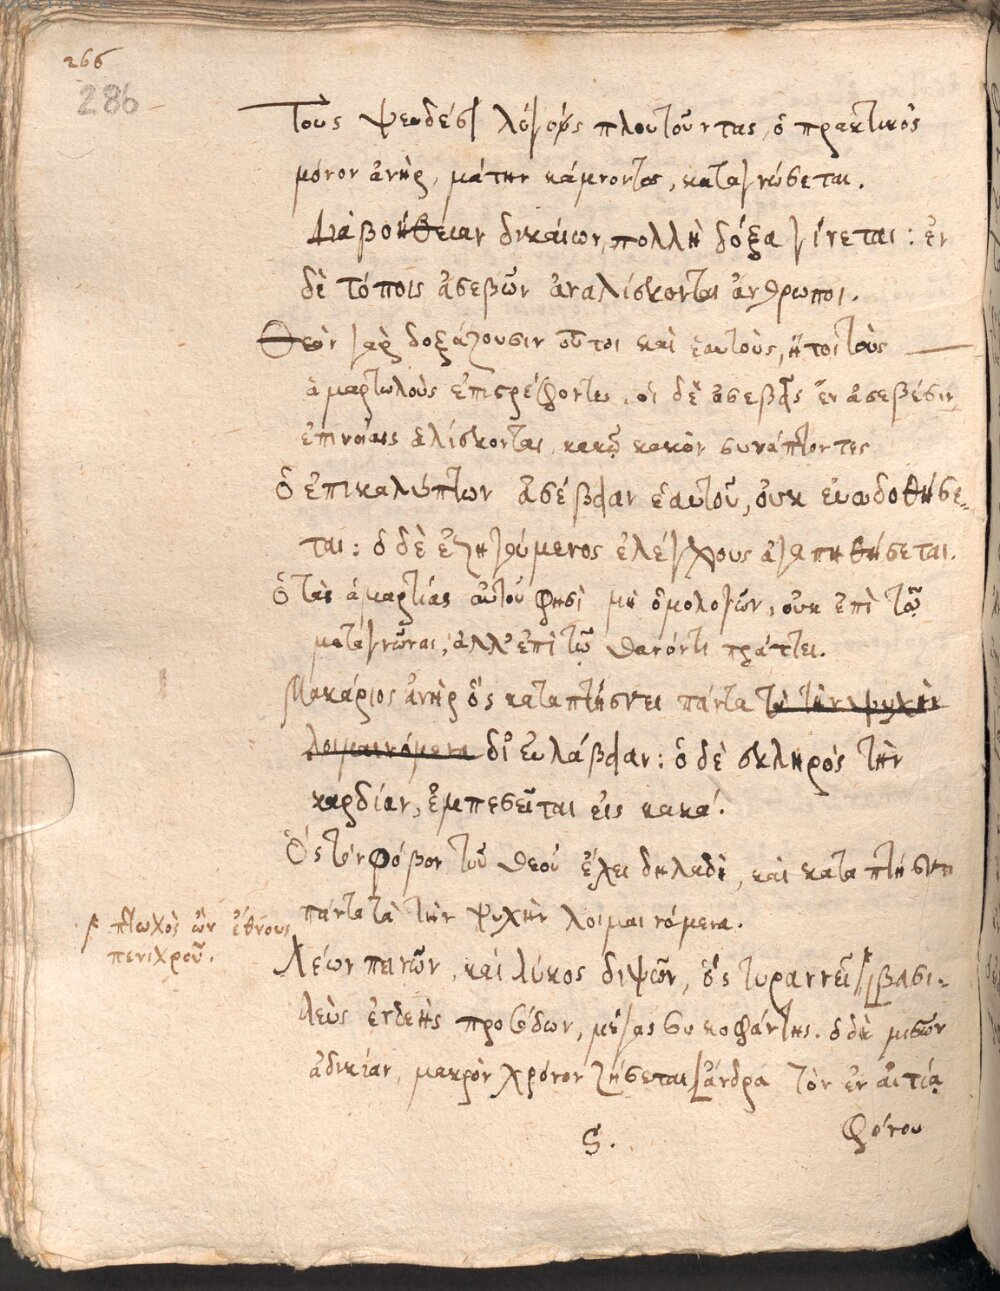 266
286
Τοὺς ψευδέσι λόγοις πλουτοῦντας, ὁ πρακτικὸς
μόνον ἀνὴρ, μάτην κάμνοντας, καταγνώσεται.
Διὰ βοήθειαν δικαίων, πολλὴ δόξα γίνεται: ἐν
δὲ τόποις ἀσεβῶν ἀναλίσκονται ἄνθρωποι.
Θεὸν γὰρ δοξάζουσιν οὗτοι καὶ ἑαυτοὺς, ἤτοι τοὺς
ἁμαρτωλοὺς ἐπιστρέφοντες. οἱ δὲ ἀσεβεῖς ἐν ἀσεβέσιν
ἐπινοίαις ἁλίσκονται, κακῷ κακὸν συνάπτοντες
ὁ ἐπικαλύπτων ἀσέβειαν ἑαυτοῦ, οὐκ εὐοδοθήσε-
ται: ὁ δὲ ἐξηγούμενος ἐλέγχους ἀγαπηθήσεται.
ὁ τὰς ἁμαρτίας αὐτοῦ φησὶ μὴ ὁμολογῶν, οὐκ ἐπὶ τῷ
μεταγνῶναι, ἀλλ' ἐπὶ τῷ θανόντι πράττει.
Μακάριος ἀνὴρ ὃς καταπτήσσει πάντα τὰ τὴν ψυχὴν
λοιμαινόμενα δι' εὐλάβειαν: ὁ δὲ σκληρὸς τὴν
καρδίαν, ἐμπεσεῖται εἰς κακά.
Ὃς τὸν φόβον τοῦ θεοῦ ἔχει δηλαδὴ, καὶ καταπτήσσει
πάντα τὰ τὴν ψυχὴν λοιμαινόμενα.
πτωχὸς ὢν ἔθνους
πενιχροῦ.
Λέων πεινῶν, καὶ λύκος διψῶν, ὃς τυραννεῖ βασι-
λεὺς ἐνδεὴς προσόδων, μέγας συκοφάντης. ὁ δὲ μισῶν
ἀδικίαν, μακρὸν χρόνον ζήσεται ἄνδρα τὸν ἐν αἰτίᾳ
ς.
φόνου